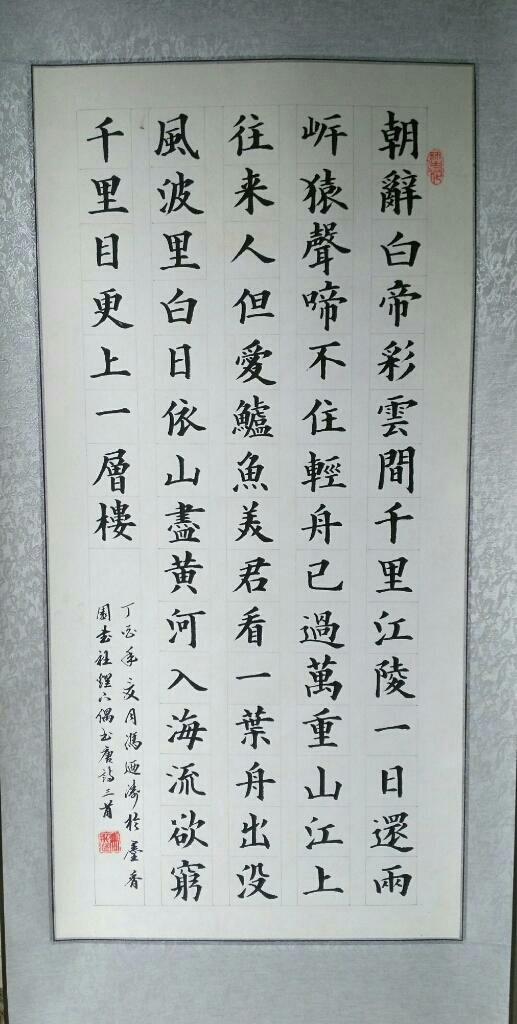 朝辭白帝彩雲間千里江陵一日還兩
岸猿聲啼不住輕舟已過萬重山江上
往来人但愛鱸魚美君看一葉舟出没
風波里白日依山盡黄河入海流欲窮
千里目更上一層樓
丁酉年夏月馮迺濤於墨香
園書社偶书唐詩三首